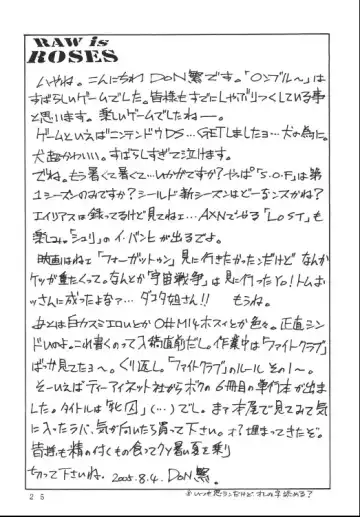 RAW is
ROSES
いやね。こんにちわ DoN繁です。「ロンブル〜」は
すばらしいゲームでした。皆様もすでにしゃぶりつくしている事
と思います。楽しいゲームでしたねー。
ゲームといえばニンテンドウDS…GETしましたョ…犬の為に。
犬超かわいい。すばらしすぎて泣けます。
でね。もう暑くて暑くて…いかがですか？やっぱ「S.O.F」は第
1シーズンのみですか？シールド新シーズンはどーなンスかね？
エイリアスは録ってるけど見てねェ…AXNでやる「LOST」も
楽しみ。「シュリ」の
が出るでよ。
映画はねェ「フォーガットゥン」見に行きたかったンだけど なんか
ケツが重たくって。なんとか「宇宙戦争」は見に行ったYo！トムお
ッさんに成ったよなァ… ダコタ姐さん!! もうね。
あとは白カスミエロいとか
とか色々。正直シン
ドいのよ。これ書くのって入稿直前だし。作業中は「ファイトクラブ」
ばっか見たョ〜。くり返し。「ファイトクラブ」のルール その1〜。
そーいえばティーアイネット社からボクの6冊目の単行本が出ま
した。タイトルは「死囚」(…)でし。まァ本屋で見てみて気
に入ったラバ、気が向いたら買って下さい。オ？埋まってきたぞ。
皆越も精の付くもの食ってクソ暑い夏を乗り
切って下さいね。2005.8.4. DoN繁。
25